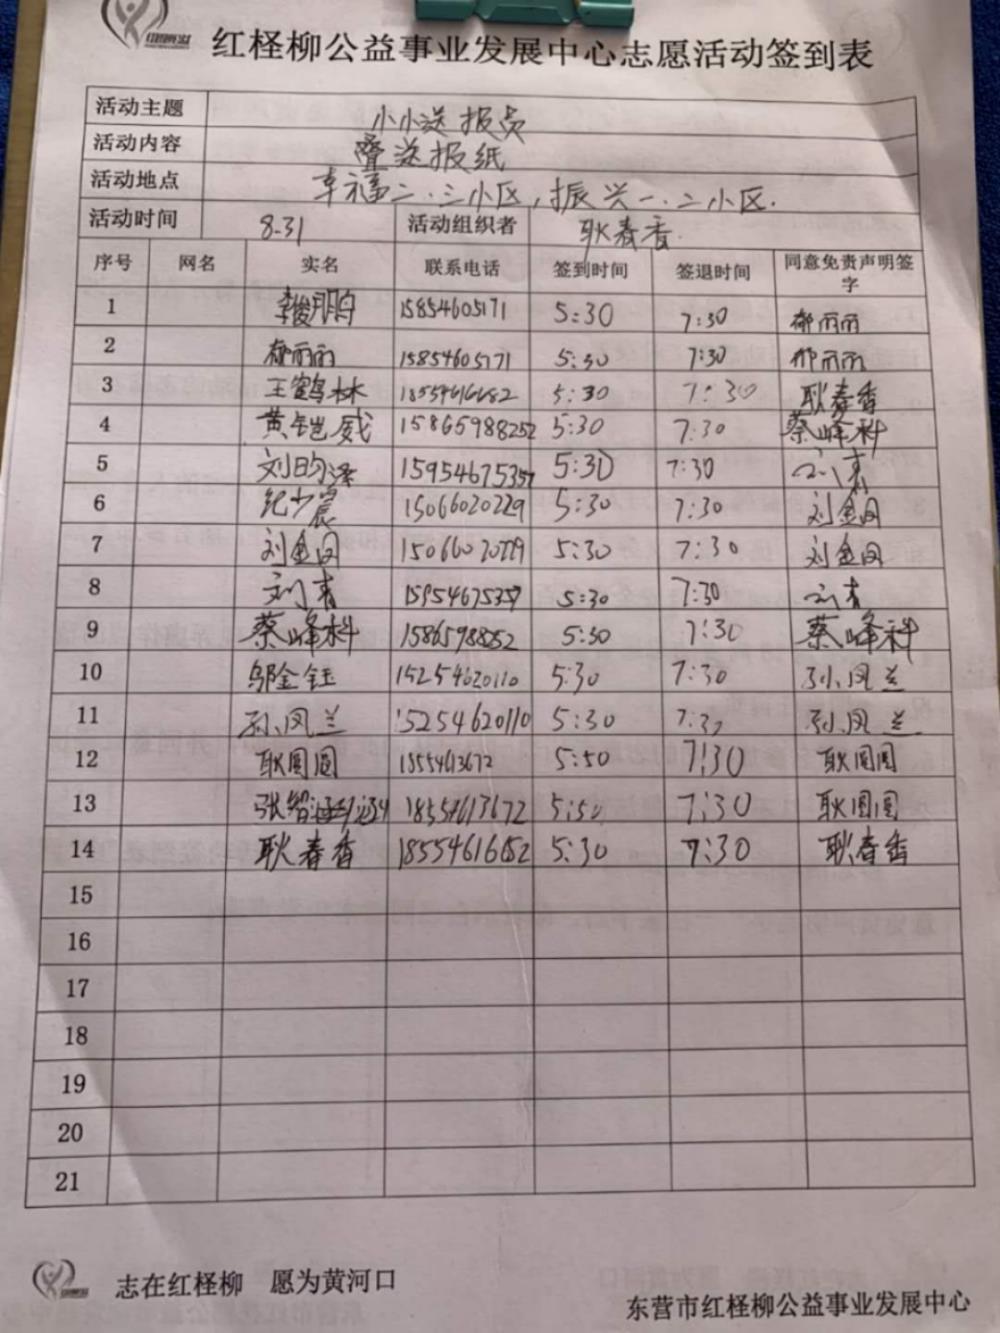 红柽柳公益事业发展中心志愿活动签到表
活动主题 小小送报员
活动内容 叠送报纸
活动地点 幸福二.三小区,振兴一.二小区.
活动时间 8-31 活动组织者 耿春香
序号 网名 实名 联系电话 签到时间 签退时间 同意免责声明签字
1 李俊鹏 15854605171 5:30 7:30 郁丽丽
2 郁丽丽 15854605171 5:30 7:30 郁丽丽
3 王鹤林 18554616682 5:30 7:30 耿春香
4 黄铠威 15865988252 5:30 7:30 蔡峰科
5 刘昀泽 15954675357 5:30 7:30 刘青
6 纪少宸 15066020229 5:30 7:30 刘金凤
7 刘金凤 15066020229 5:30 7:30 刘金凤
8 刘青 15954675357 5:30 7:30 刘青
9 蔡峰科 15865988252 5:30 7:30 蔡峰科
10 邬金钰 15254620110 5:30 7:30 孙凤兰
11 孙凤兰 15254620110 5:30 7:3 孙凤兰
12 耿圆圆 18554613672 5:50 7:30 耿圆圆
13 张智涵 18554613672 5:50 7:30 耿圆圆
14 耿春香 18554616652 5:30 7:30 耿春香
15
16
17
18
19
20
21
志在红柽柳 愿为黄河口
东营市红柽柳公益事业发展中心